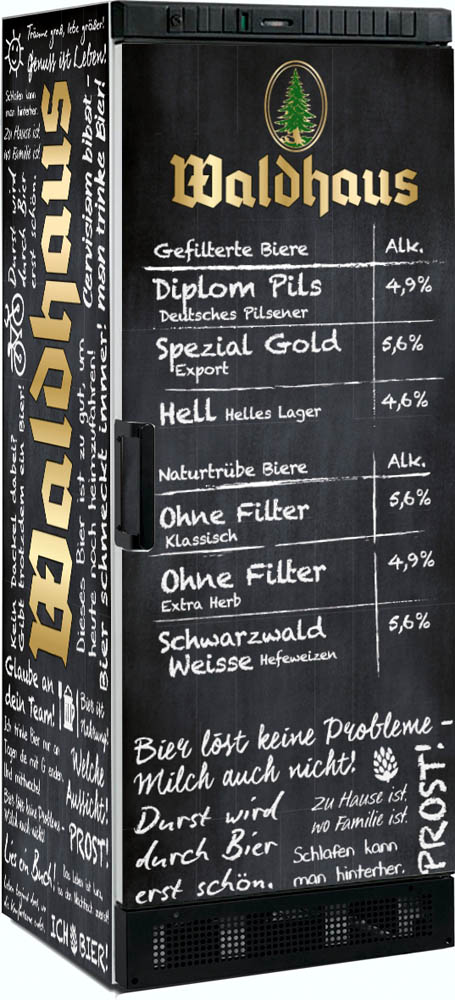 Träume groß, lebe größer!
Genuss ist Leben!
Schlafen kann
man hinterher.
Zu Hause ist,
wo Familie ist.
Durst wird
durch Bier
erst schön.
Waldhaus
Cervisiam bibat
Kein Dackel dabei?
Gibt trotzdem ein Bier!
Dieses Bier ist zu gut, um
heute noch heimzufahren!
Bier schmeckt immer! man trinke Bier!
Glaube an
dein Team!
Bier ist
Nahrung!
Ich trinke Bier nur an
Tagen die mit G enden.
Und mittwochs!
Welche
Aussicht!
Bier löst keine Probleme -
Milch auch nicht!
PROST!
Lies ein Buch!
ICH BIER!
Waldhaus
Gefilterte Biere Alk.
Diplom Pils 4,9%
Deutsches Pilsener
Spezial Gold 5,6%
Export
Hell Helles Lager 4,6%
Naturtrübe Biere Alk.
Ohne Filter 5,6%
Klassisch
Ohne Filter 4,9%
Extra Herb
Schwarzwald 5,6%
Weisse Hefeweizen
Bier löst keine Probleme -
Milch auch nicht!
Durst wird
durch Bier
erst schön.
Zu Hause ist,
wo Familie ist.
Schlafen kann
man hinterher.
PROST!